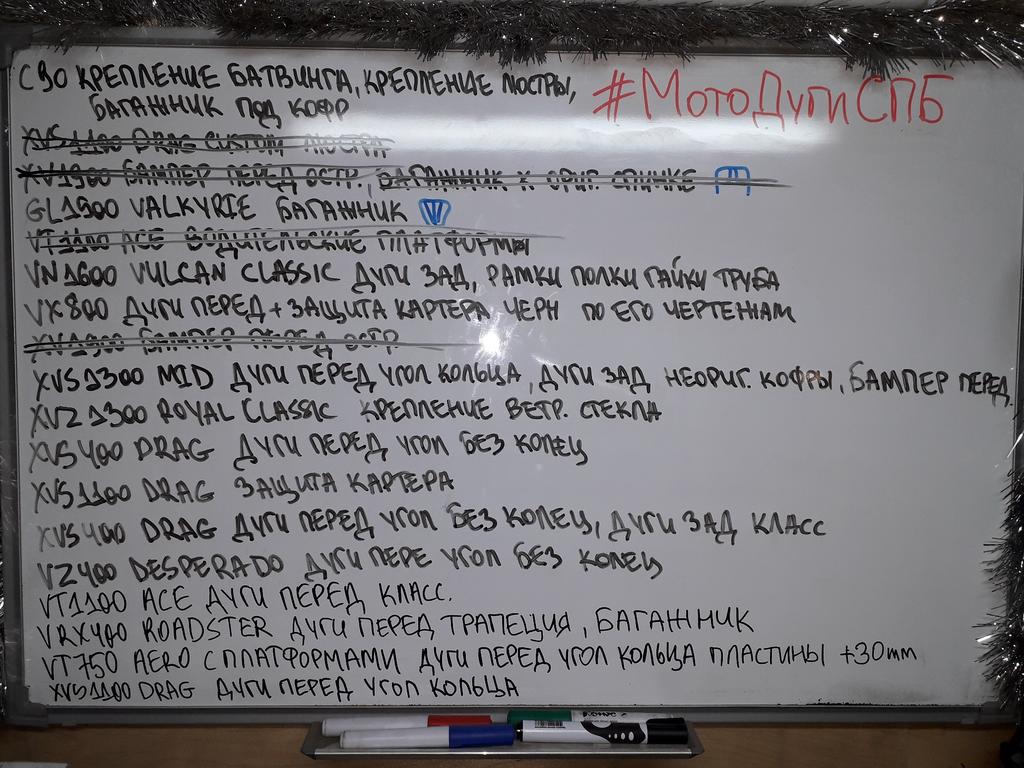 C90 КРЕПЛЕНИЕ БАТВИНГА, КРЕПЛЕНИЕ ЛЮСТРЫ,
БАГАЖНИК ПОД КОФР
#МотоДугиСПБ
XVS1100 DRAG CUSTOM ЛЮСТРА
XV1900 БАМПЕР ПЕРЕД ОСТР., БАГАЖНИК К ОРИГ. СПИНКЕ
GL1500 VALKYRIE БАГАЖНИК
VT1100 ACE ВОДИТЕЛЬСКИЕ ПЛАТФОРМЫ
VN1600 VULCAN CLASSIC ДУГИ ЗАД, РАМКИ ПОЛКИ ГАЙКИ ТРУБА
VX800 ДУГИ ПЕРЕД + ЗАЩИТА КАРТЕРА ЧЕРН ПО ЕГО ЧЕРТЕЖАМ
XV1900 БАМПЕР ПЕРЕД ОСТР
XVS1300 MID ДУГИ ПЕРЕД УГОЛ КОЛЬЦА, ДУГИ ЗАД НЕОРИГ. КОФРЫ, БАМПЕР ПЕРЕД.
XVZ1300 ROYAL CLASSIC КРЕПЛЕНИЕ ВЕТР. СТЕКЛА
XVS400 DRAG ДУГИ ПЕРЕД УГОЛ БЕЗ КОЛЕЦ
XVS1100 DRAG ЗАЩИТА КАРТЕРА
XVS400 DRAG ДУГИ ПЕРЕД УГОЛ БЕЗ КОЛЕЦ, ДУГИ ЗАД КЛАСС
VZ400 DESPERADO ДУГИ ПЕРЕ УГОЛ БЕЗ КОЛЕЦ
VT1100 ACE ДУГИ ПЕРЕД КЛАСС.
VRX400 ROADSTER ДУГИ ПЕРЕД ТРАПЕЦИЯ, БАГАЖНИК
VT750 AERO С ПЛАТФОРМАМИ ДУГИ ПЕРЕД УГОЛ КОЛЬЦА ПЛАСТИНЫ +30mm
XVS1100 DRAG ДУГИ ПЕРЕД УГОЛ КОЛЬЦА